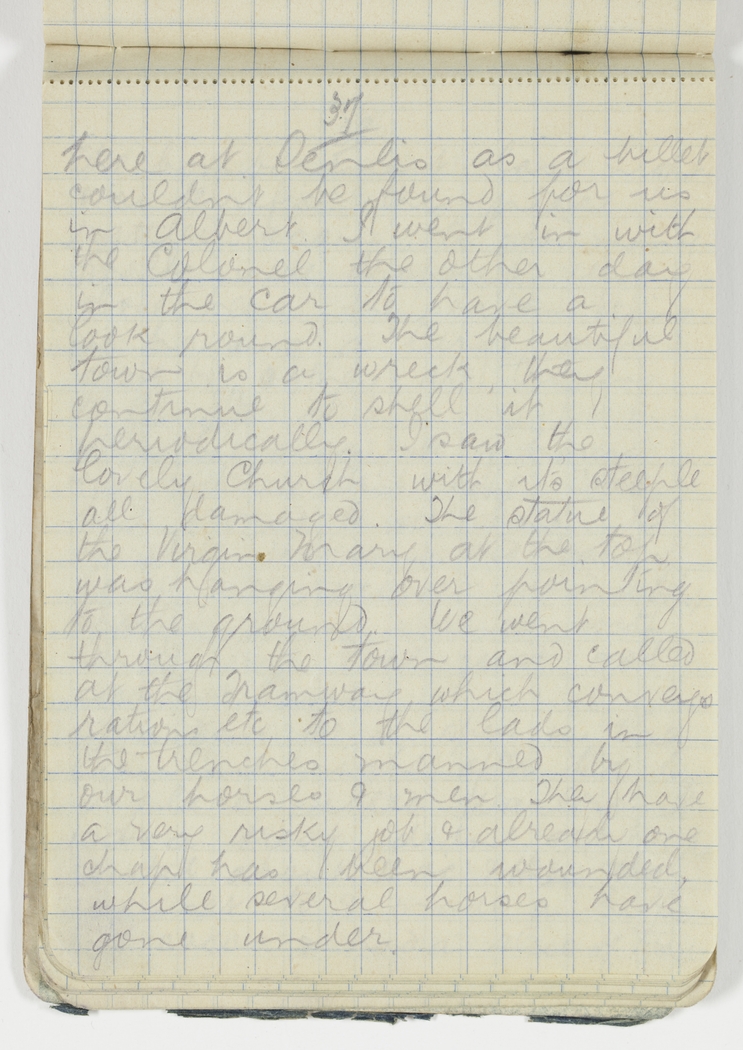 37
here at Dernlis as a billet
couldn't be found for us
in Albert. I went in with
the Colonel the other day
in the car to have a
look round. The beautiful
town is a wreck, they
continue to shell it
periodically. I saw the
lovely Church with its steeple
all damaged. The statue of
the Virgin Mary at the top
was hanging over pointing
to the ground. We went
through the town and called
at the Tramway which conveys
rations etc to the lads in
the trenches manned by
our horses & men. They have
a very risky job & already one
chap has been wounded,
while several horses have
gone under.